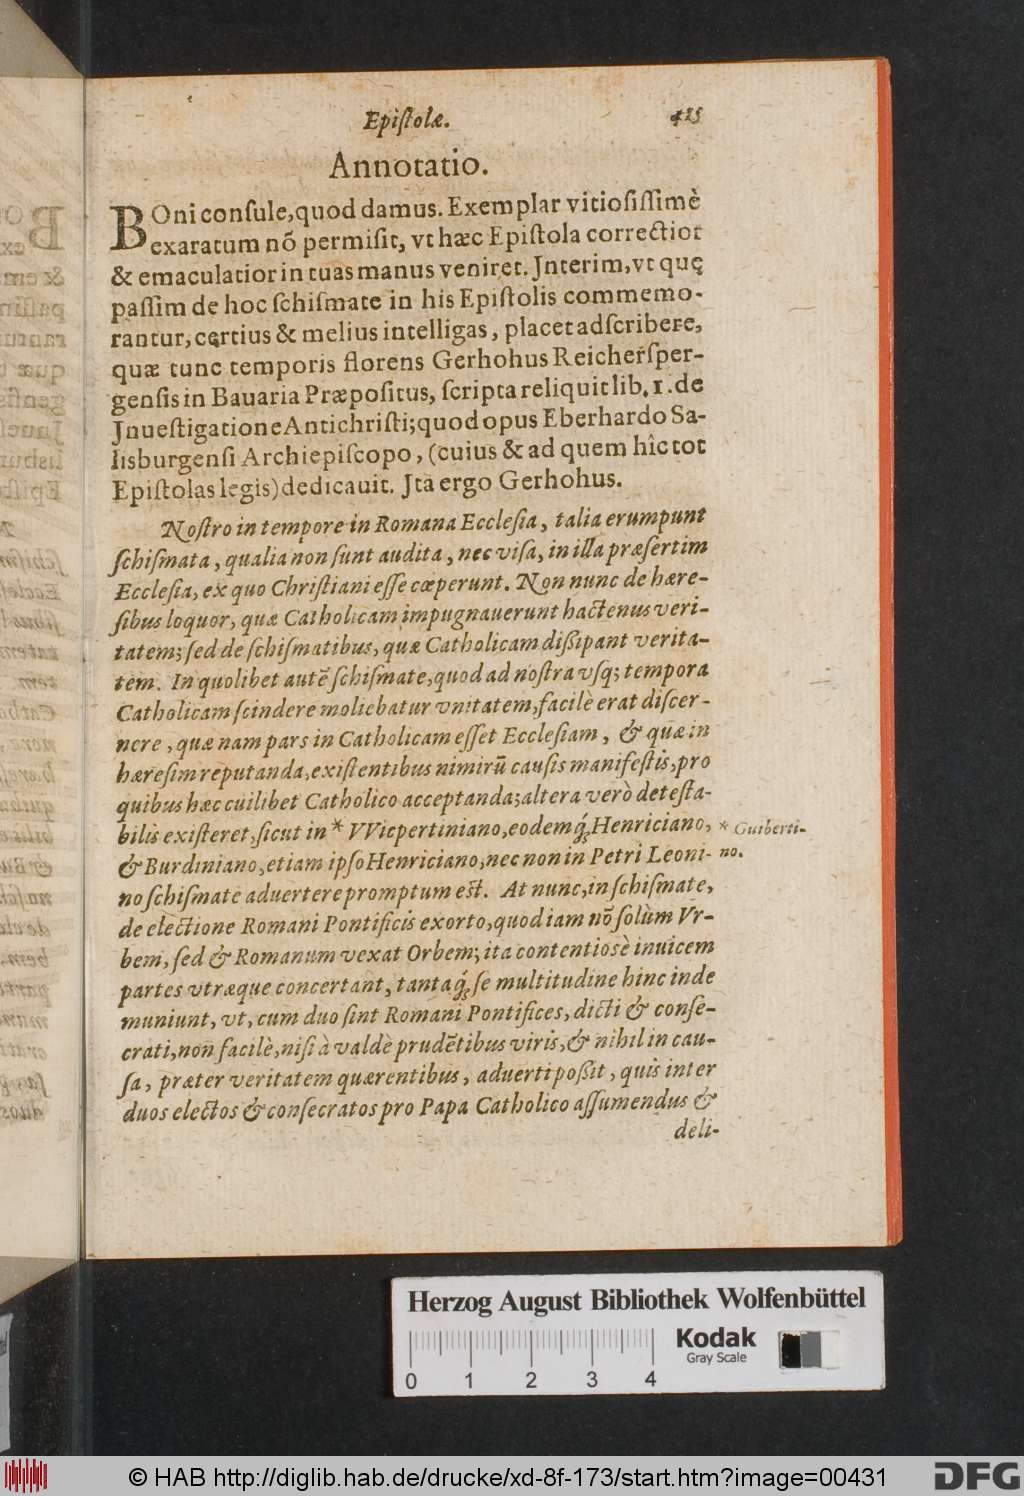 Epiſtolæ. 425
Annotatio.
BOni conſule, quod damus. Exemplar vitioſiſſimè
exaratum nõ permiſit, vt hæc Epiſtola correctior
& emaculatior in tuas manus veniret. Jnterim, vt quę
paſſim de hoc ſchiſmate in his Epiſtolis commemo-
rantur, certius & melius intelligas, placet adſcribere,
quæ tunc temporis florens Gerhohus Reicherſper-
genſis in Bauaria Præpoſitus, ſcripta reliquit lib. 1. de
Jnueſtigatione Antichriſti; quod opus Eberhardo Sa-
lisburgenſi Archiepiſcopo, (cuius & ad quem hîc tot
Epiſtolas legis) dedicauit. Jta ergo Gerhohus.
Noſtro in tempore in Romana Eccleſia, talia erumpunt
ſchiſmata, qualia non ſunt audita, nec viſa, in illa præſertim
Eccleſia, ex quo Chriſtiani eſſe cœperunt. Non nunc de hære-
ſibus loquor, quæ Catholicam impugnauerunt hactenus veri-
tatem; ſed de ſchiſmatibus, quæ Catholicam diſſipant verita-
tem. In quolibet autẽ ſchiſmate, quod ad noſtra vſq; tempora
Catholicam ſcindere moliebatur vnitatem, facilè erat diſcer-
nere, quæ nam pars in Catholicam eſſet Eccleſiam, & quæ in
hæreſim reputanda, exiſtentibus nimirũ cauſis manifeſtis, pro
quibus hæc cuilibet Catholico acceptanda; altera verò deteſta-
bilis exiſteret, ſicut in * VVicpertiniano, eodemq́; Henriciano,
* Guiberti-
no.
& Burdiniano, etiam ipſo Henriciano, nec non in Petri Leoni-
no ſchiſmate aduertere promptum eſt. At nunc, in ſchiſmate,
de electione Romani Pontificis exorto, quod iam nõ ſolùm Vr-
bem, ſed & Romanum vexat Orbem; ita contentiosè inuicem
partes vtræque concertant, tantaq́; ſe multitudine hinc inde
muniunt, vt, cum duo ſint Romani Pontifices, dicti & conſe-
crati, non facilè, niſi à valdè prudẽtibus viris, & nihil in cau-
ſa, præter veritatem quærentibus, aduerti poßit, quis inter
duos electos & conſecratos pro Papa Catholico aſſumendus &
deli-
Herzog August Bibliothek Wolfenbüttel
Kodak
Gray Scale
0 1 2 3 4
© HAB http://diglib.hab.de/drucke/xd-8f-173/start.htm?image=00431
DFG